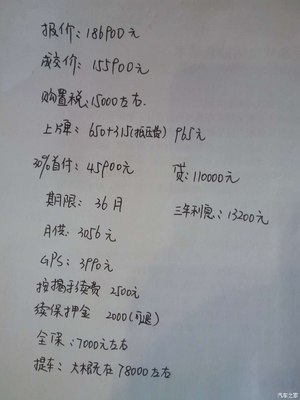 报价：186900元
成交价：155900元
购置税：15000左右.
上片单：650+315(抵压费) 965元
30%首付：45900元 贷：110000元
期限：36月 三年利息：13200元
月供：3056元
GPS：3990元
按揭手续费 2500元
续保押金 2000(可退)
全保：7000元左右
提车：大概在78000左右
汽车之家